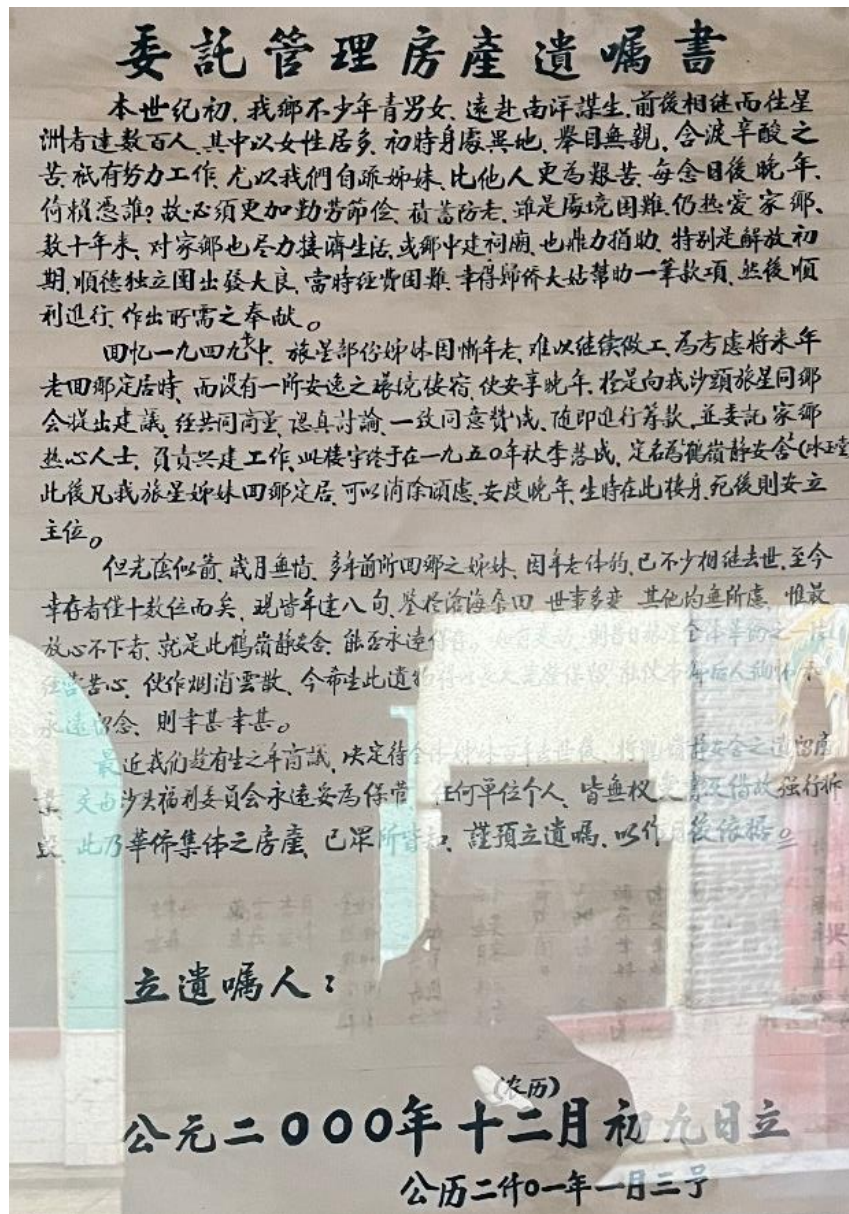 委託管理房產遺嘱書
本世纪初，我鄉不少年青男女，遠赴南洋謀生，前後相継而往星
洲者達数百人，其中以女性居多，初時身處異地，舉目無親，含淚辛酸之
苦，祗有努力工作，尤以我們自疏姊妹，比他人更為艱苦，每念日後晚年，
倚賴憑誰？故必須更加勤劳節儉，積蓄防老，雖是處境困難，仍热爱家鄉、
数十年来，对家鄉也尽力接濟生活，或鄉中建祠廟，也鼎力捐助，特别是解放初
期，順德独立团出發大良，當時经費困難，幸得歸侨大姑幫助一筆款項，然後順
利進行，作出所需之奉献。
回忆一九四九年中，旅星部份姊妹因惭年老，难以继续做工，為考慮將来年
老回鄉定居時，而没有一所安逸之環境棲宿，使安享晚年，於是向我沙頭旅星同鄉
会提出建議，经共同商量，認真討論，一致同意贊成，随即進行筹款，並委託家鄉
热心人士，負責兴建工作，此楼宇终于在一九五〇年秋季落成，定名為鶴嶺静安舍（冰玉堂
此後凡我旅星姊妹回鄉定居，可以消除顾慮，安度晚年，生時在此棲身，死後則安立
主位。
但光陰似箭，歲月無情，多年前所回鄉之姊妹，因年老体弱，已不少相継去世，至今
幸存者僅十数位而矣，現皆年達八旬，鉴於滄海桑田，世事多变，其他均無所慮，惟最
放心不下者，就是此鶴嶺静安舍，能否永遠保存。
经营苦心，伙作烟消雲散，今希望此遺
永遠留念，則幸甚幸甚。
最近我们趁有生之年商議，决定待全体姊妹百年去世後，將鶴嶺静安舍之遺留產
業，交由沙头福利委员会永遠妥為保管，任何單位个人，皆無权变卖及借故强行拆
毁，此乃華僑集体之房產，已眾所皆知，謹預立遺嘱，以作日後依据。
立遺嘱人：
（农历）
公元二〇〇〇年十二月初九日立
公历二仟〇一年一月三号